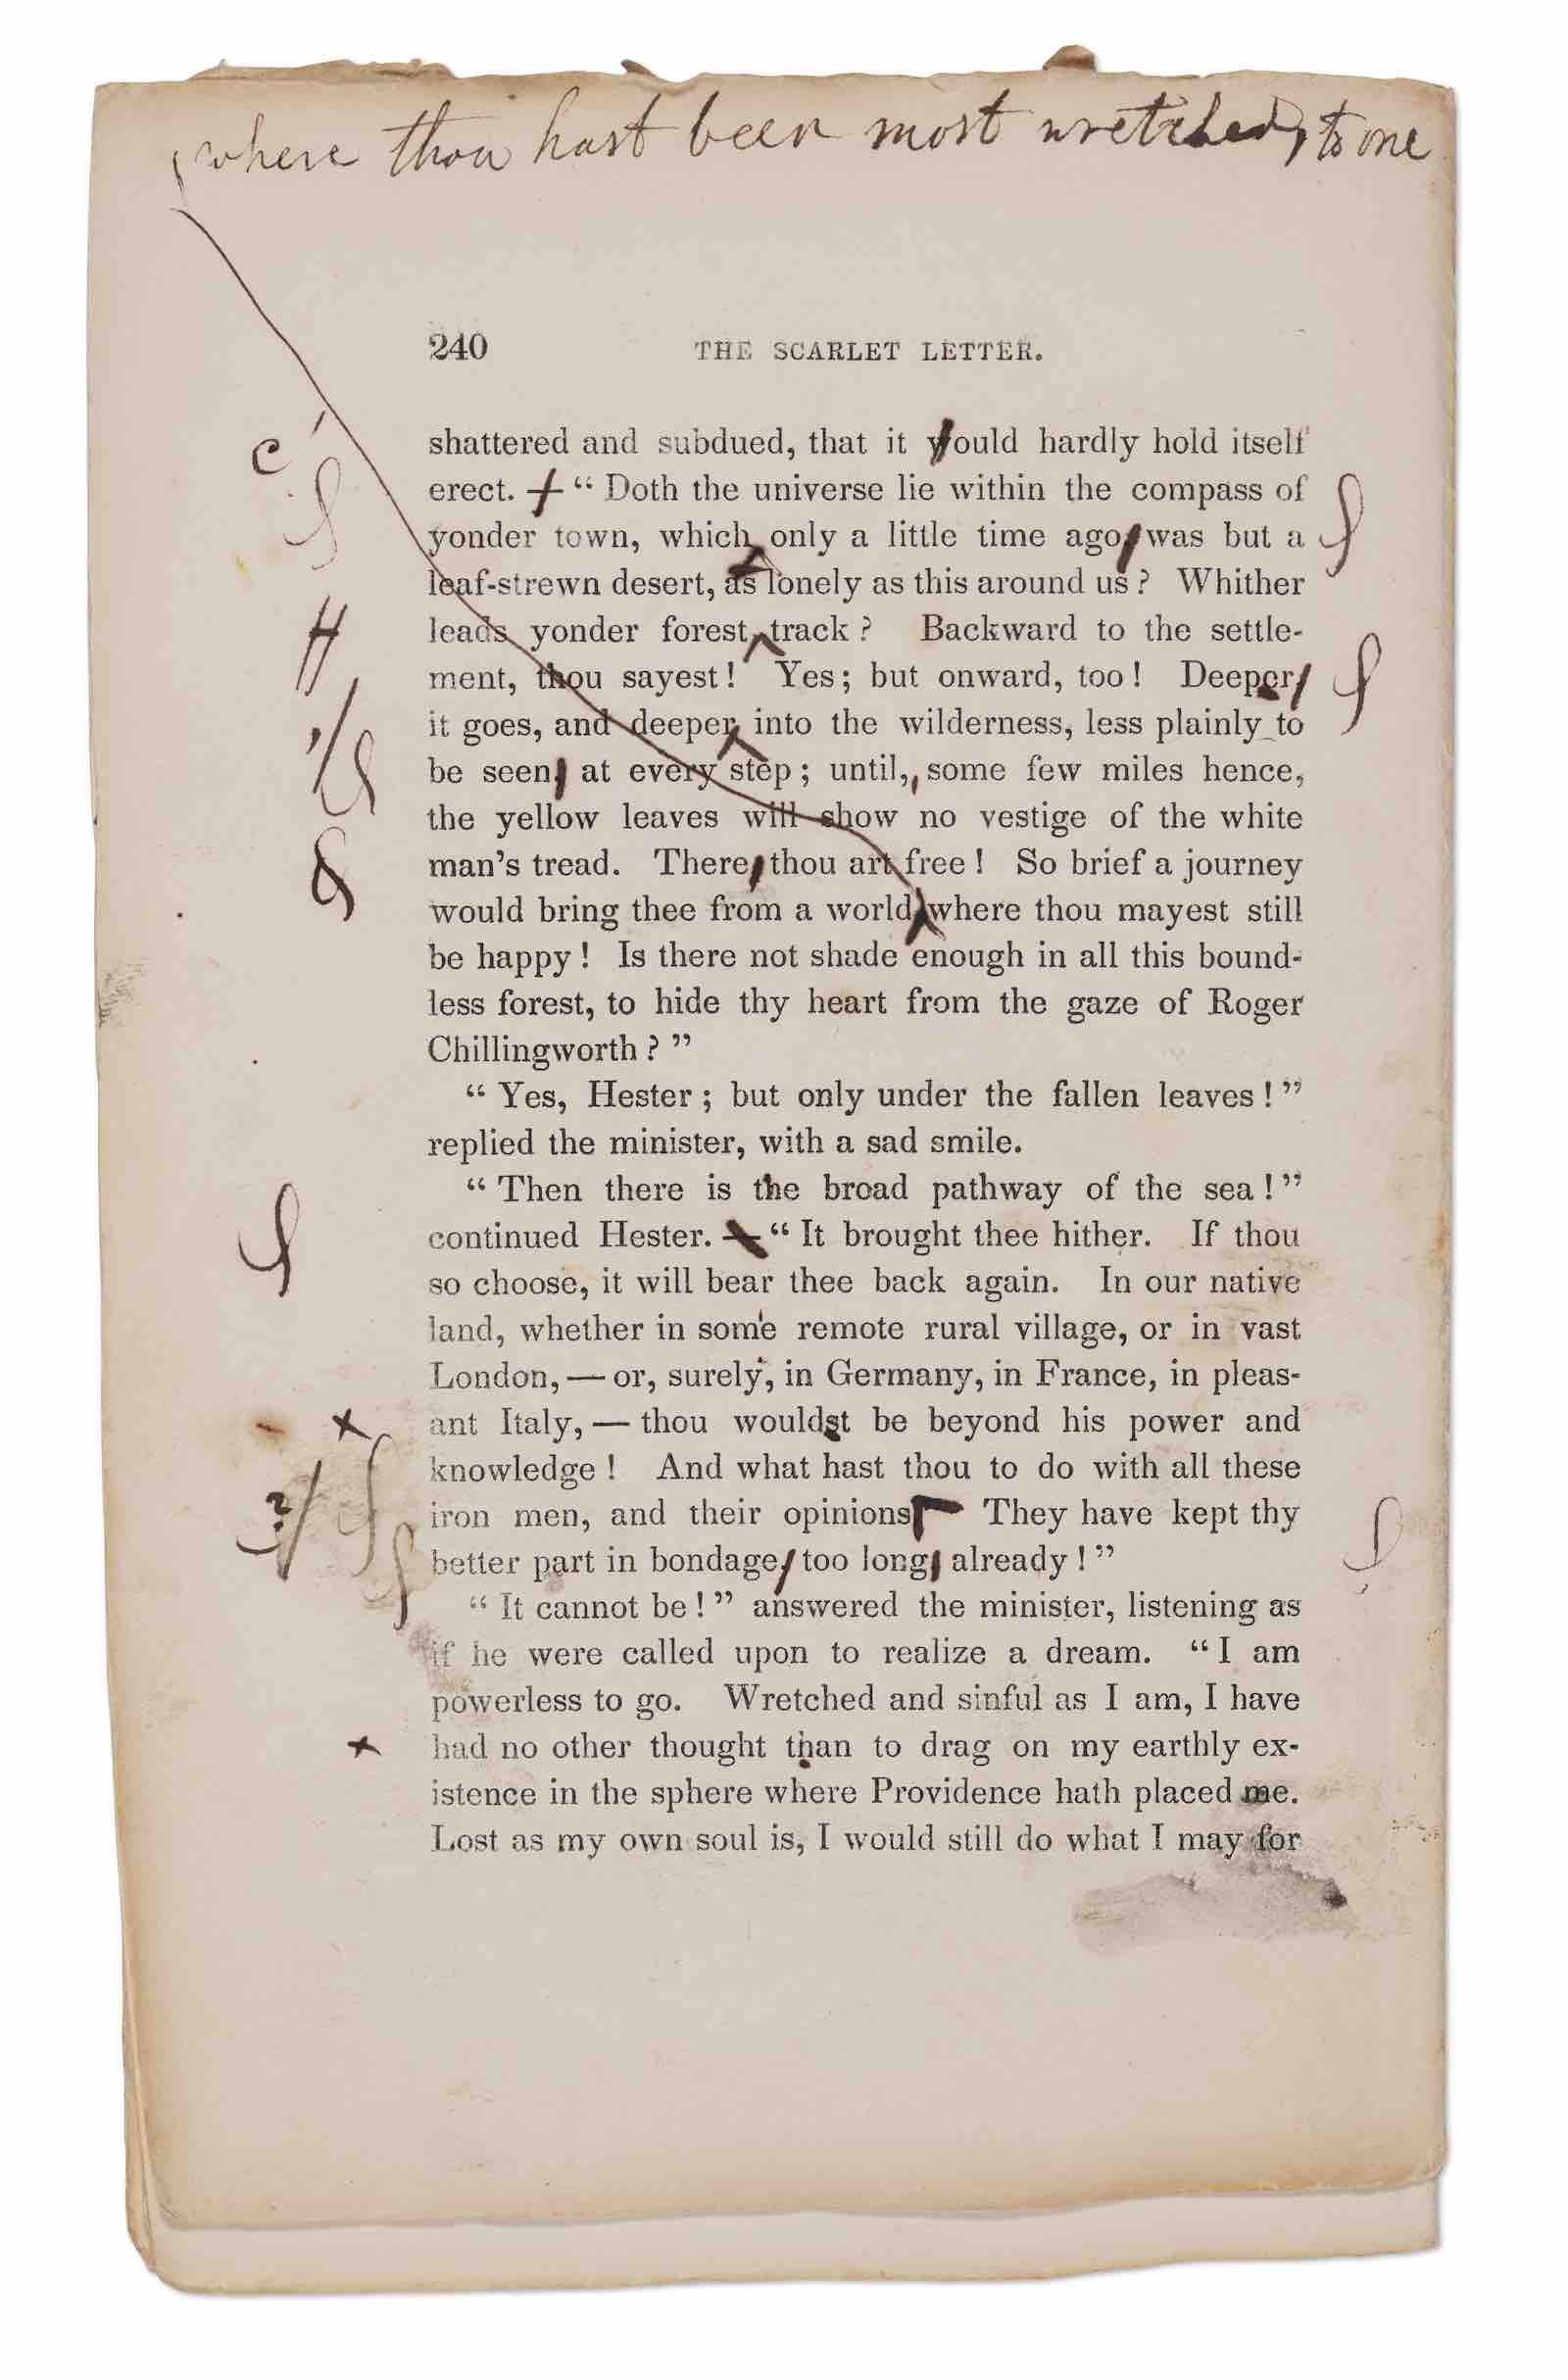 where thou hast been most wretched, to one
240 THE SCARLET LETTER.
shattered and subdued, that it would hardly hold itself
c
erect. — “Doth the universe lie within the compass of
yonder town, which only a little time ago, was but a
leaf-strewn desert, as lonely as this around us? Whither
leads yonder forest, track? Backward to the settle-
ment, thou sayest! Yes; but onward, too! Deeper,
it goes, and deeper, into the wilderness, less plainly to
be seen, at every step; until, some few miles hence,
the yellow leaves will show no vestige of the white
man’s tread. There, thou art free! So brief a journey
would bring thee from a world, where thou mayest still
be happy! Is there not shade enough in all this bound-
less forest, to hide thy heart from the gaze of Roger
Chillingworth?”
“Yes, Hester; but only under the fallen leaves!”
replied the minister, with a sad smile.
“Then there is the broad pathway of the sea!”
continued Hester. — “It brought thee hither. If thou
so choose, it will bear thee back again. In our native
land, whether in some remote rural village, or in vast
London, — or, surely, in Germany, in France, in pleas-
x ant Italy, — thou wouldst be beyond his power and
knowledge! And what hast thou to do with all these
?/ iron men, and their opinions They have kept thy
better part in bondage, too long, already!”
“It cannot be!” answered the minister, listening as
if he were called upon to realize a dream. “I am
powerless to go. Wretched and sinful as I am, I have
x had no other thought than to drag on my earthly ex-
istence in the sphere where Providence hath placed me.
Lost as my own soul is, I would still do what I may for